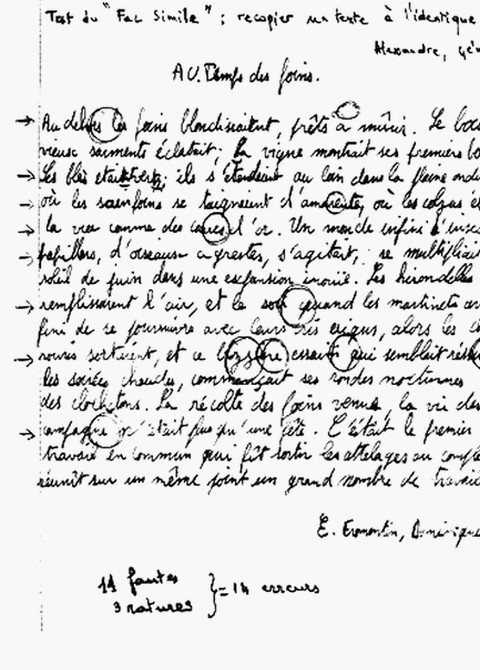 Test du "Fac Simile" : recopier un texte à l'identique
Alexandre,
AU. Temps des foins.
Au dehors les foins blondissaient, prêts à mûrir. Le
sarments éclatait; La vigne montrait ses premiers
Les blés verts; ils s'étendaient au loin dans la plaine
où les sainfoins se teignaient d' où les colzas
la vue comme des d'or. Un monde infini
papillons, d'oiseaux agrestes, s'agitait, se
soleil de juin dans une expansion inouïe. Les hirondelles
remplissaient l'air, et le soir quand les martinets
fini de se poursuivre avec leurs cris aigus, alors les
sortaient, et ce qui semblait
les soirées chaudes, commençait ses rondes nocturnes
des clochetons. La récolte des foins venue, la vie des
n'était plus qu'une fête. C'était le premier
travail en commun qui fît sortir les attelages au
réunît sur un même point un grand nombre de
E. Fromentin,
11 fautes
3 ratures } = 14 erreurs